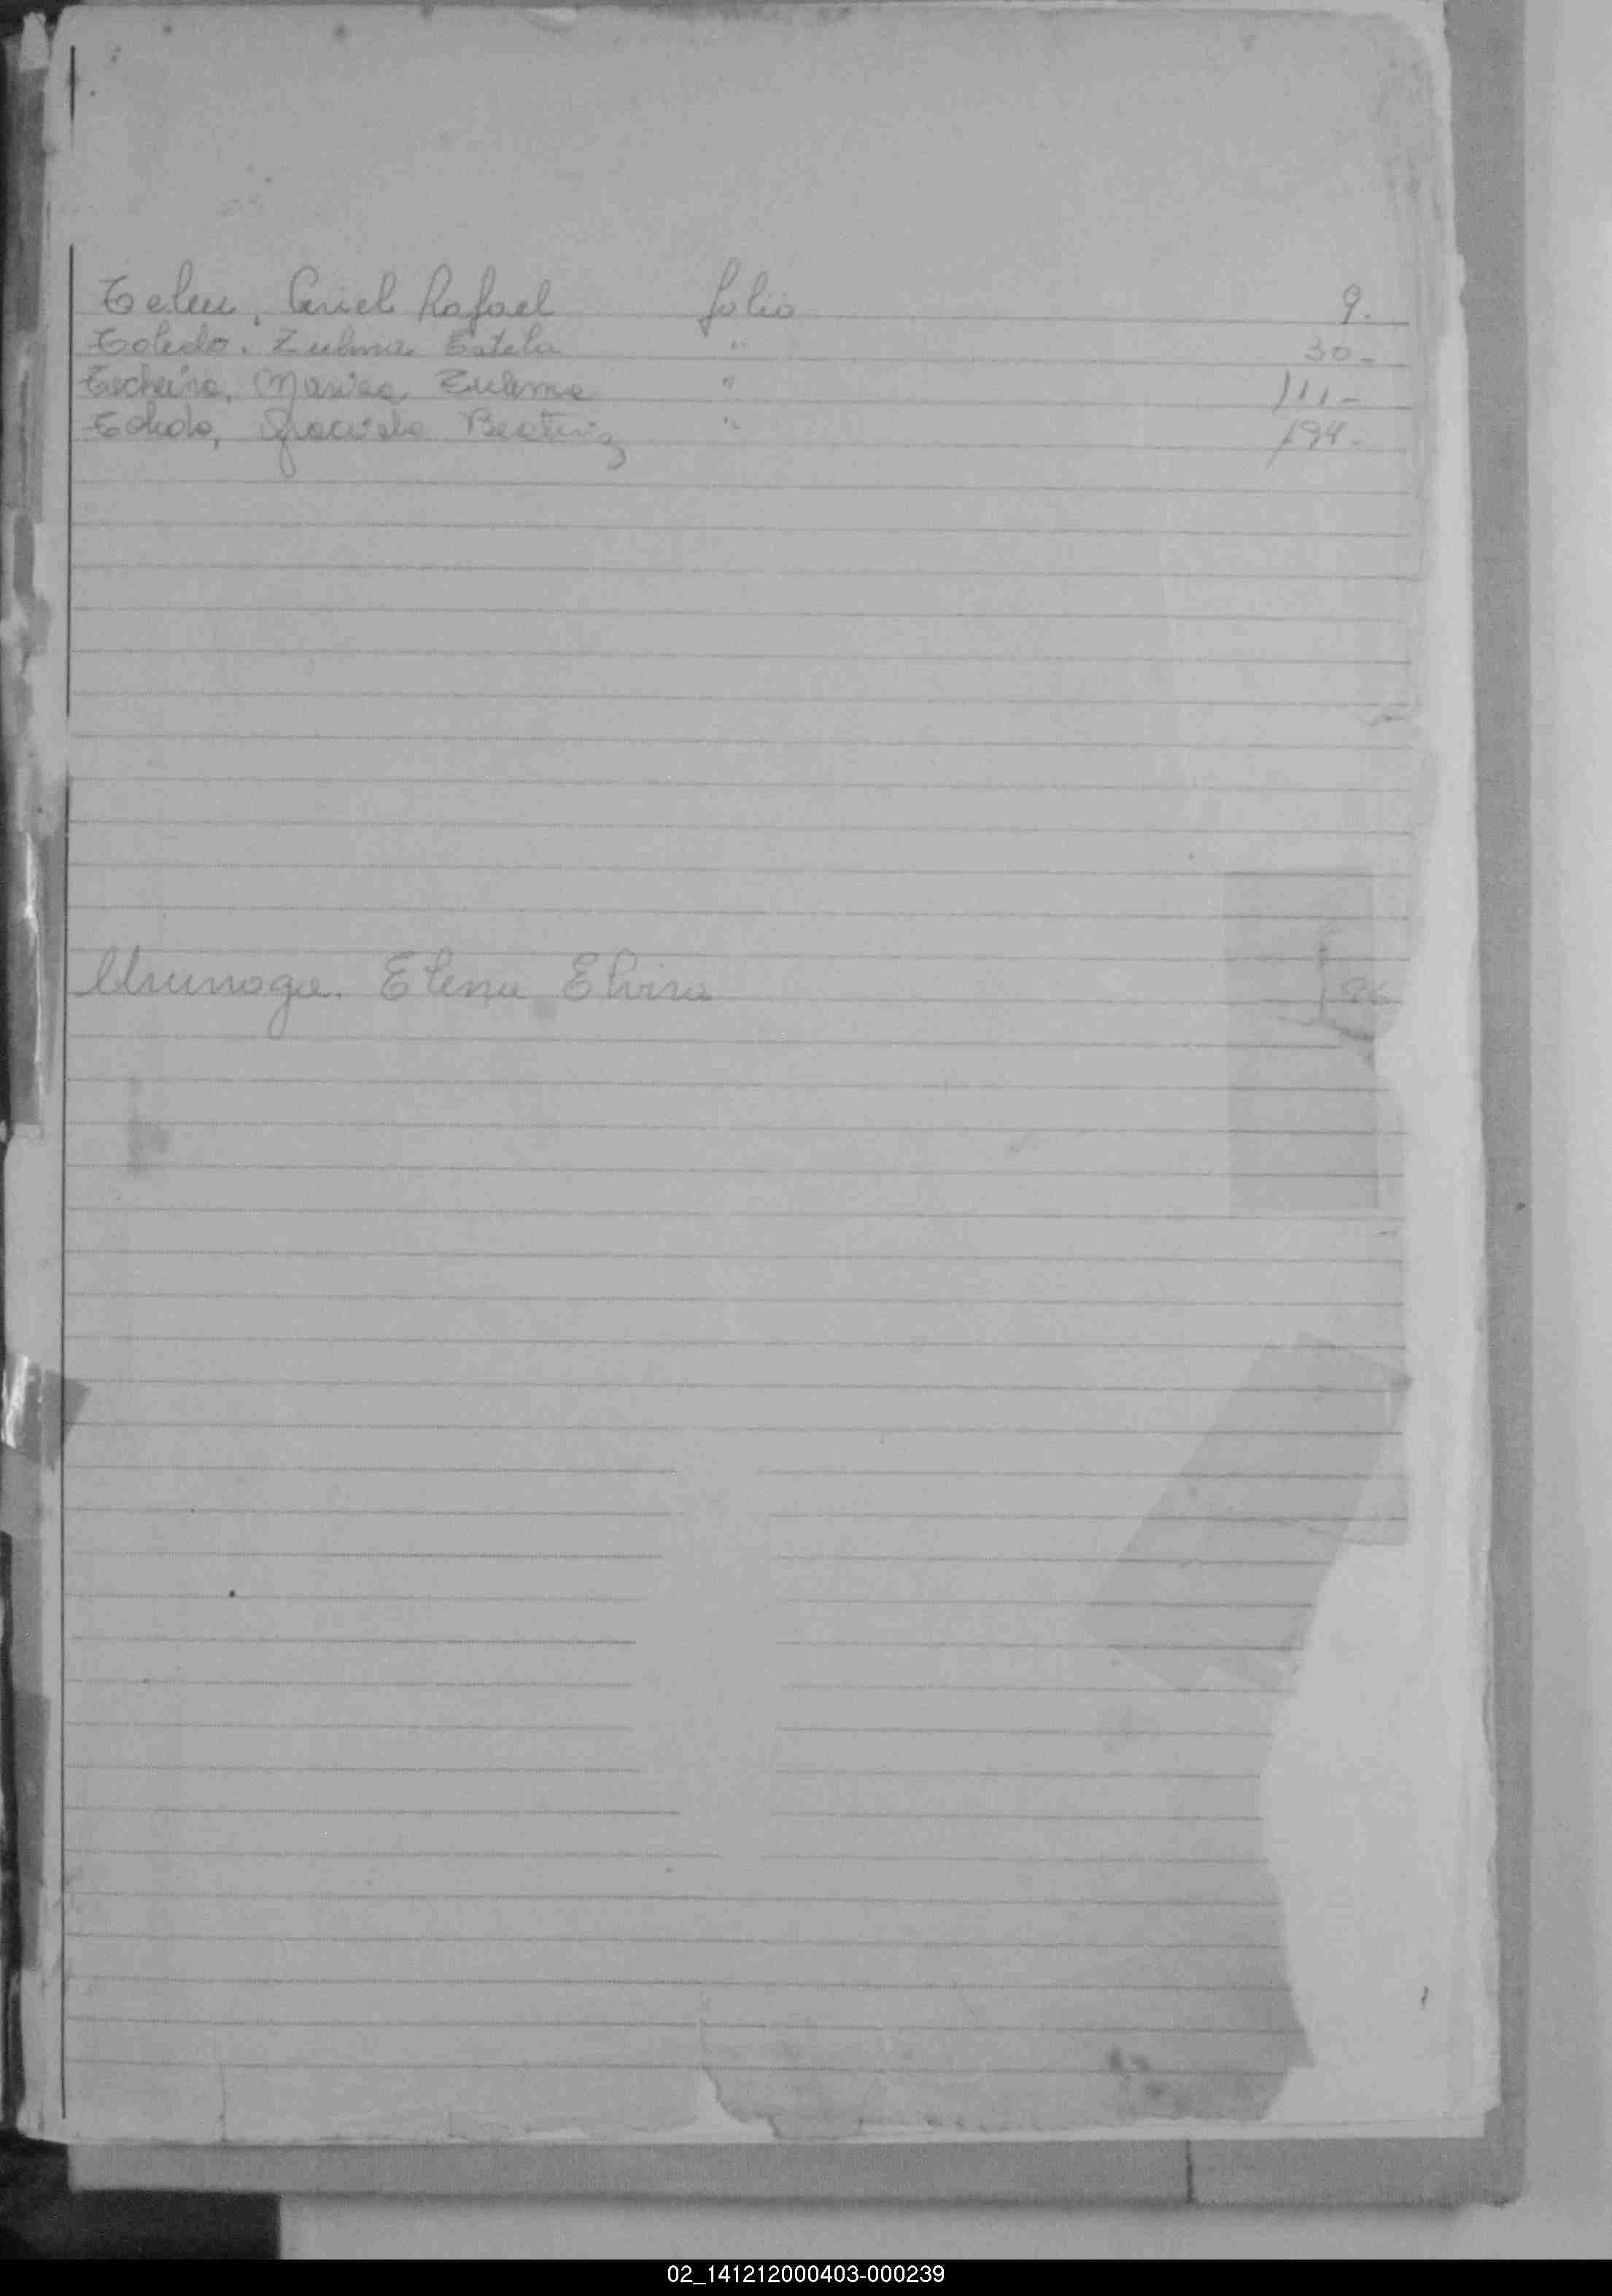 Teleu, Ariel Rafael folio 9.
Toledo, Zulma Estela " 30-
Techeira, Marisa Zulema " 111-
Toledo, Graciela Beatriz " 194-
Urunaga. Elena Elvira
02_141212000403-000239